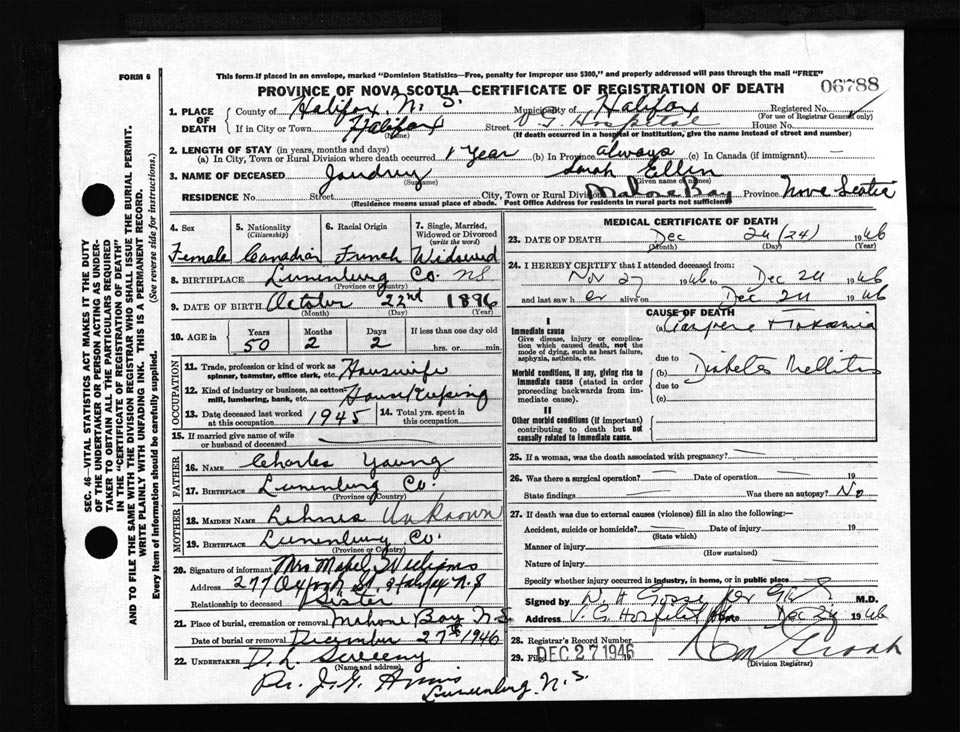 FORM 6
This form if placed in an envelope, marked "Dominion Statistics—Free, penalty for improper use $300," and properly addressed will pass through the mail "FREE"
PROVINCE OF NOVA SCOTIA—CERTIFICATE OF REGISTRATION OF DEATH
06788
SEC. 46—VITAL STATISTICS ACT MAKES IT THE DUTY
OF THE UNDERTAKER OR PERSON ACTING AS UNDER-
TAKER TO OBTAIN ALL THE PARTICULARS REQUIRED
IN THE "CERTIFICATE OF REGISTRATION OF DEATH"
AND TO FILE THE SAME WITH THE DIVISION REGISTRAR WHO SHALL ISSUE THE BURIAL PERMIT.
WRITE PLAINLY WITH UNFADING INK. THIS IS A PERMANENT RECORD.
Every item of information should be carefully supplied. (See reverse side for instructions.)
1. PLACE OF DEATH County of Halifax, N. S. Municipality of Halifax Registered No.
(For use of Registrar General only)
If in City or Town Halifax Street V. G. Hospital House No.
(Name) (If death occurred in a hospital or institution, give the name instead of street and number)
2. LENGTH OF STAY (in years, months and days)
(a) In City, Town or Rural Division where death occurred 1 Year (b) In Province always (c) In Canada (if immigrant) —
3. NAME OF DECEASED Jaudrey Sarah Ellen
(Surname) (Given name or names)
RESIDENCE No. Street City, Town or Rural Division Mahone Bay Province Nova Scotia
(Residence means usual place of abode. Post Office Address for residents in rural parts not sufficient)
4. Sex 5. Nationality (Citizenship) 6. Racial Origin 7. Single, Married, Widowed or Divorced (write the word)
Female Canadian French Widowed
8. BIRTHPLACE Lunenburg Co. NS
(Province or Country)
9. DATE OF BIRTH October 22nd 1896
(Month) (Day) (Year)
10. AGE in Years Months Days If less than one day old
50 2 2 hrs. or min.
OCCUPATION
11. Trade, profession or kind of work as spinner, teamster, office clerk, etc. Housewife
12. Kind of industry or business, as cotton mill, lumbering, bank, etc. House Keeping
13. Date deceased last worked at this occupation 1945 14. Total yrs. spent in this occupation
15. If married give name of wife or husband of deceased
FATHER
16. NAME Charles Young
17. BIRTHPLACE Lunenburg Co.
(Province or Country)
MOTHER
18. MAIDEN NAME Lohnes Unknown
19. BIRTHPLACE Lunenburg Co.
(Province or Country)
20. Signature of informant Mrs Mabel Williams
Address 277 Oxford St. Halifax N.S
Relationship to deceased Sister
21. Place of burial, cremation or removal Mahone Bay N.S.
Date of burial or removal December 27th 1946
22. UNDERTAKER D. L.
(Name and address)
Per. J. G.
Lunenburg, N. S.
MEDICAL CERTIFICATE OF DEATH
23. DATE OF DEATH Dec 24 (24) 1946
(Month) (Day) (Year)
24. I HEREBY CERTIFY that I attended deceased from:
Nov 27 1946 to Dec 24 1946
and last saw her alive on Dec 24 1946
CAUSE OF DEATH
I
Immediate cause (a)
Give disease, injury or complication which caused death, not the mode of dying, such as heart failure, asphyxia, asthenia, etc. due to
Morbid conditions, if any, giving rise to immediate cause (stated in order proceeding backwards from immediate cause). (b) Diabetes Mellitus
due to
(c)
II
Other morbid conditions (if important) contributing to death but not causally related to immediate cause.
25. If a woman, was the death associated with pregnancy?
26. Was there a surgical operation? Date of operation 19
State findings Was there an autopsy? No
27. If death was due to external causes (violence) fill in also the following:—
Accident, suicide or homicide? Date of injury 19
(State which)
Manner of injury
(How sustained)
Nature of injury
Specify whether injury occurred in industry, in home, or in public place
Signed by per M.D.
Address V. G. Hospital Date Dec 24 1946
28. Registrar's Record Number
29. Filed DEC 27 1946
(Division Registrar)